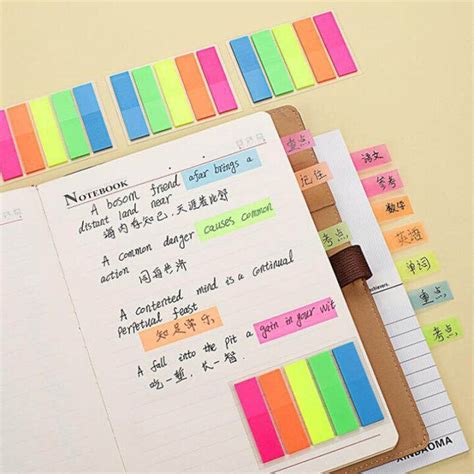 NOTEBOOK
A bosom friend afar brings a
distant land near
海内存知己,天涯若比邻
A common danger causes common
action 同舟共济
A contented mind is a continual
perpetual feast
知足常乐
A fall into the pit a gain in your wit
吃一堑,长一智
重点
记住
考点
语文
参考
数学
英语
单词
重点
考点
XINDAOMA